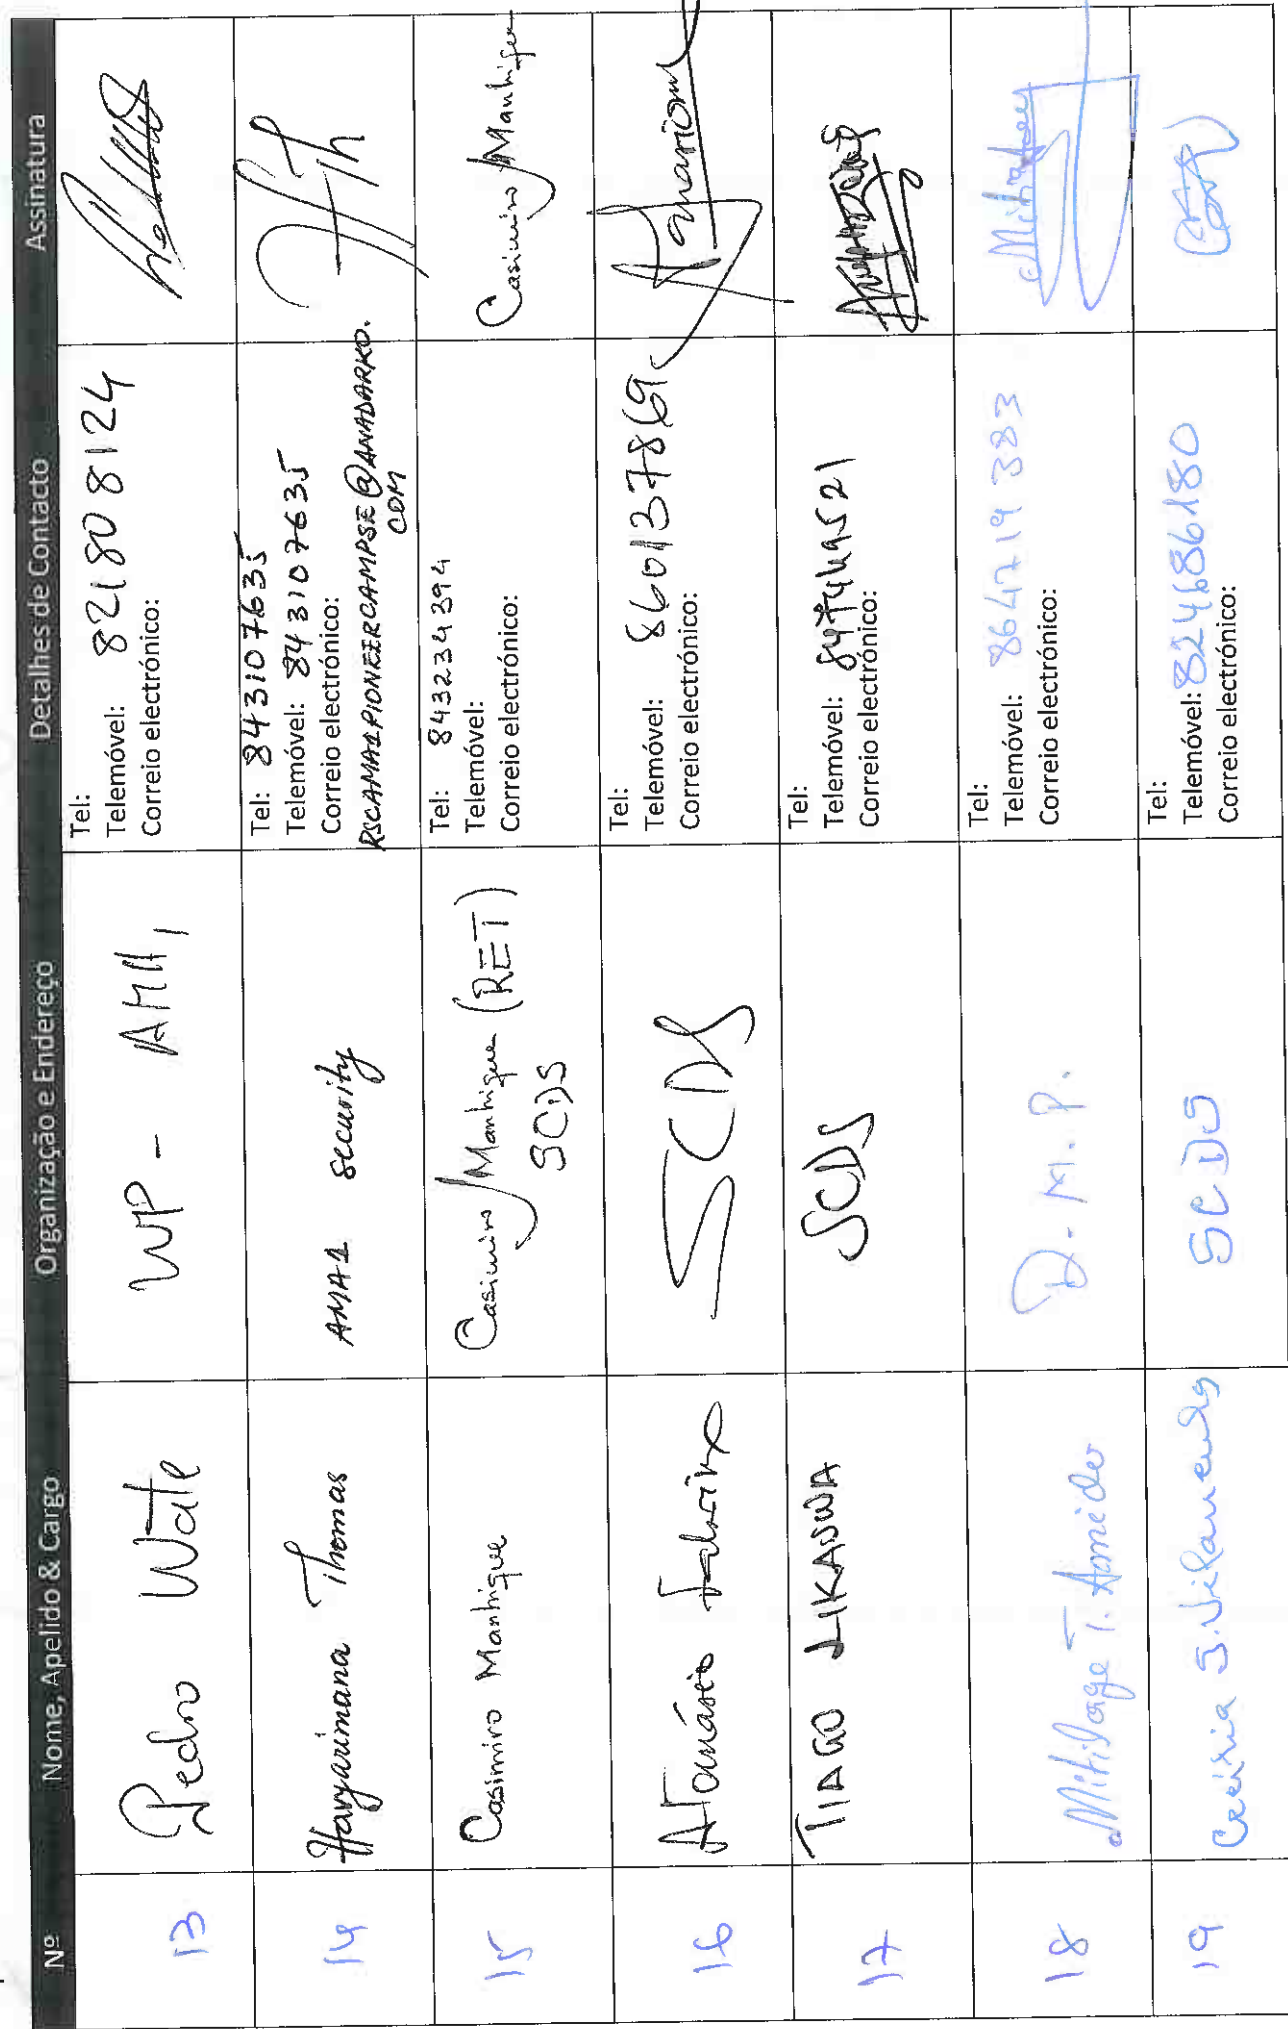 Nº Nome, Apelido & Cargo Organização e Endereço Detalhes de Contacto Assinatura
13 Pedro Wate WP - AMA1
Tel:
Telemóvel: 821808124
Correio electrónico:
14 Havyarimana Thomas AMA1 Security
Tel: 843107635
Telemóvel: 843107635
Correio electrónico:
RSCAMA1PIONEERCAMPSE@ANADARKO.
COM
15 Casimiro Manhique Casimiro Manhique (RET) Casimiro Manhique
SCDS
Tel: 843234394
Telemóvel:
Correio electrónico:
16 Atanásio SCDS
Tel:
Telemóvel: 860137869
Correio electrónico:
17 TIAGO LIKASWA SCDS
Tel:
Telemóvel: 847449521
Correio electrónico:
18 Mitilage T. D.M.P.
Tel:
Telemóvel: 864719383
Correio electrónico:
19 SCDS
Tel:
Telemóvel: 824686180
Correio electrónico: